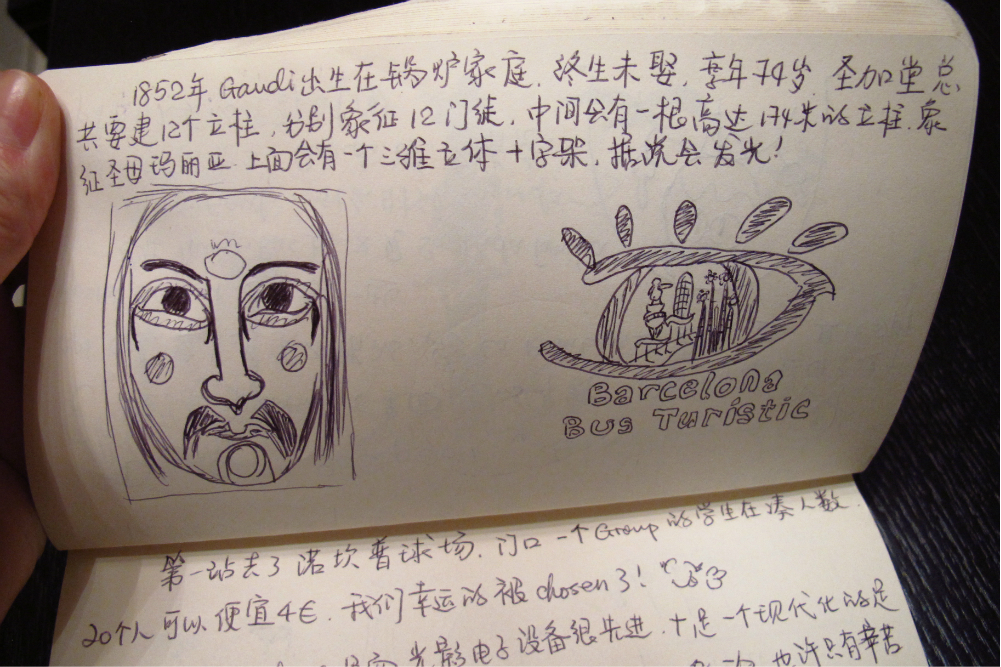 1852年, Gaudi出生在锅炉家庭, 终生未娶, 享年74岁. 圣加堂总
共要建12个立柱, 分别象征12门徒, 中间会有一根高达174米的立柱, 象
征圣母玛丽亚. 上面会有一个三维立体十字架, 据说会发光!
Barcelona
Bus Turístic
第一站去了诺坎普球场, 门口一个Group的学生在凑人数.
20个人可以便宜4€. 我们幸运的被chosen了!
光影电子设备很先进. 十足一个现代化的足
也许只有辛苦